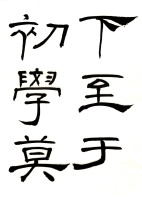 下至于
初學莫